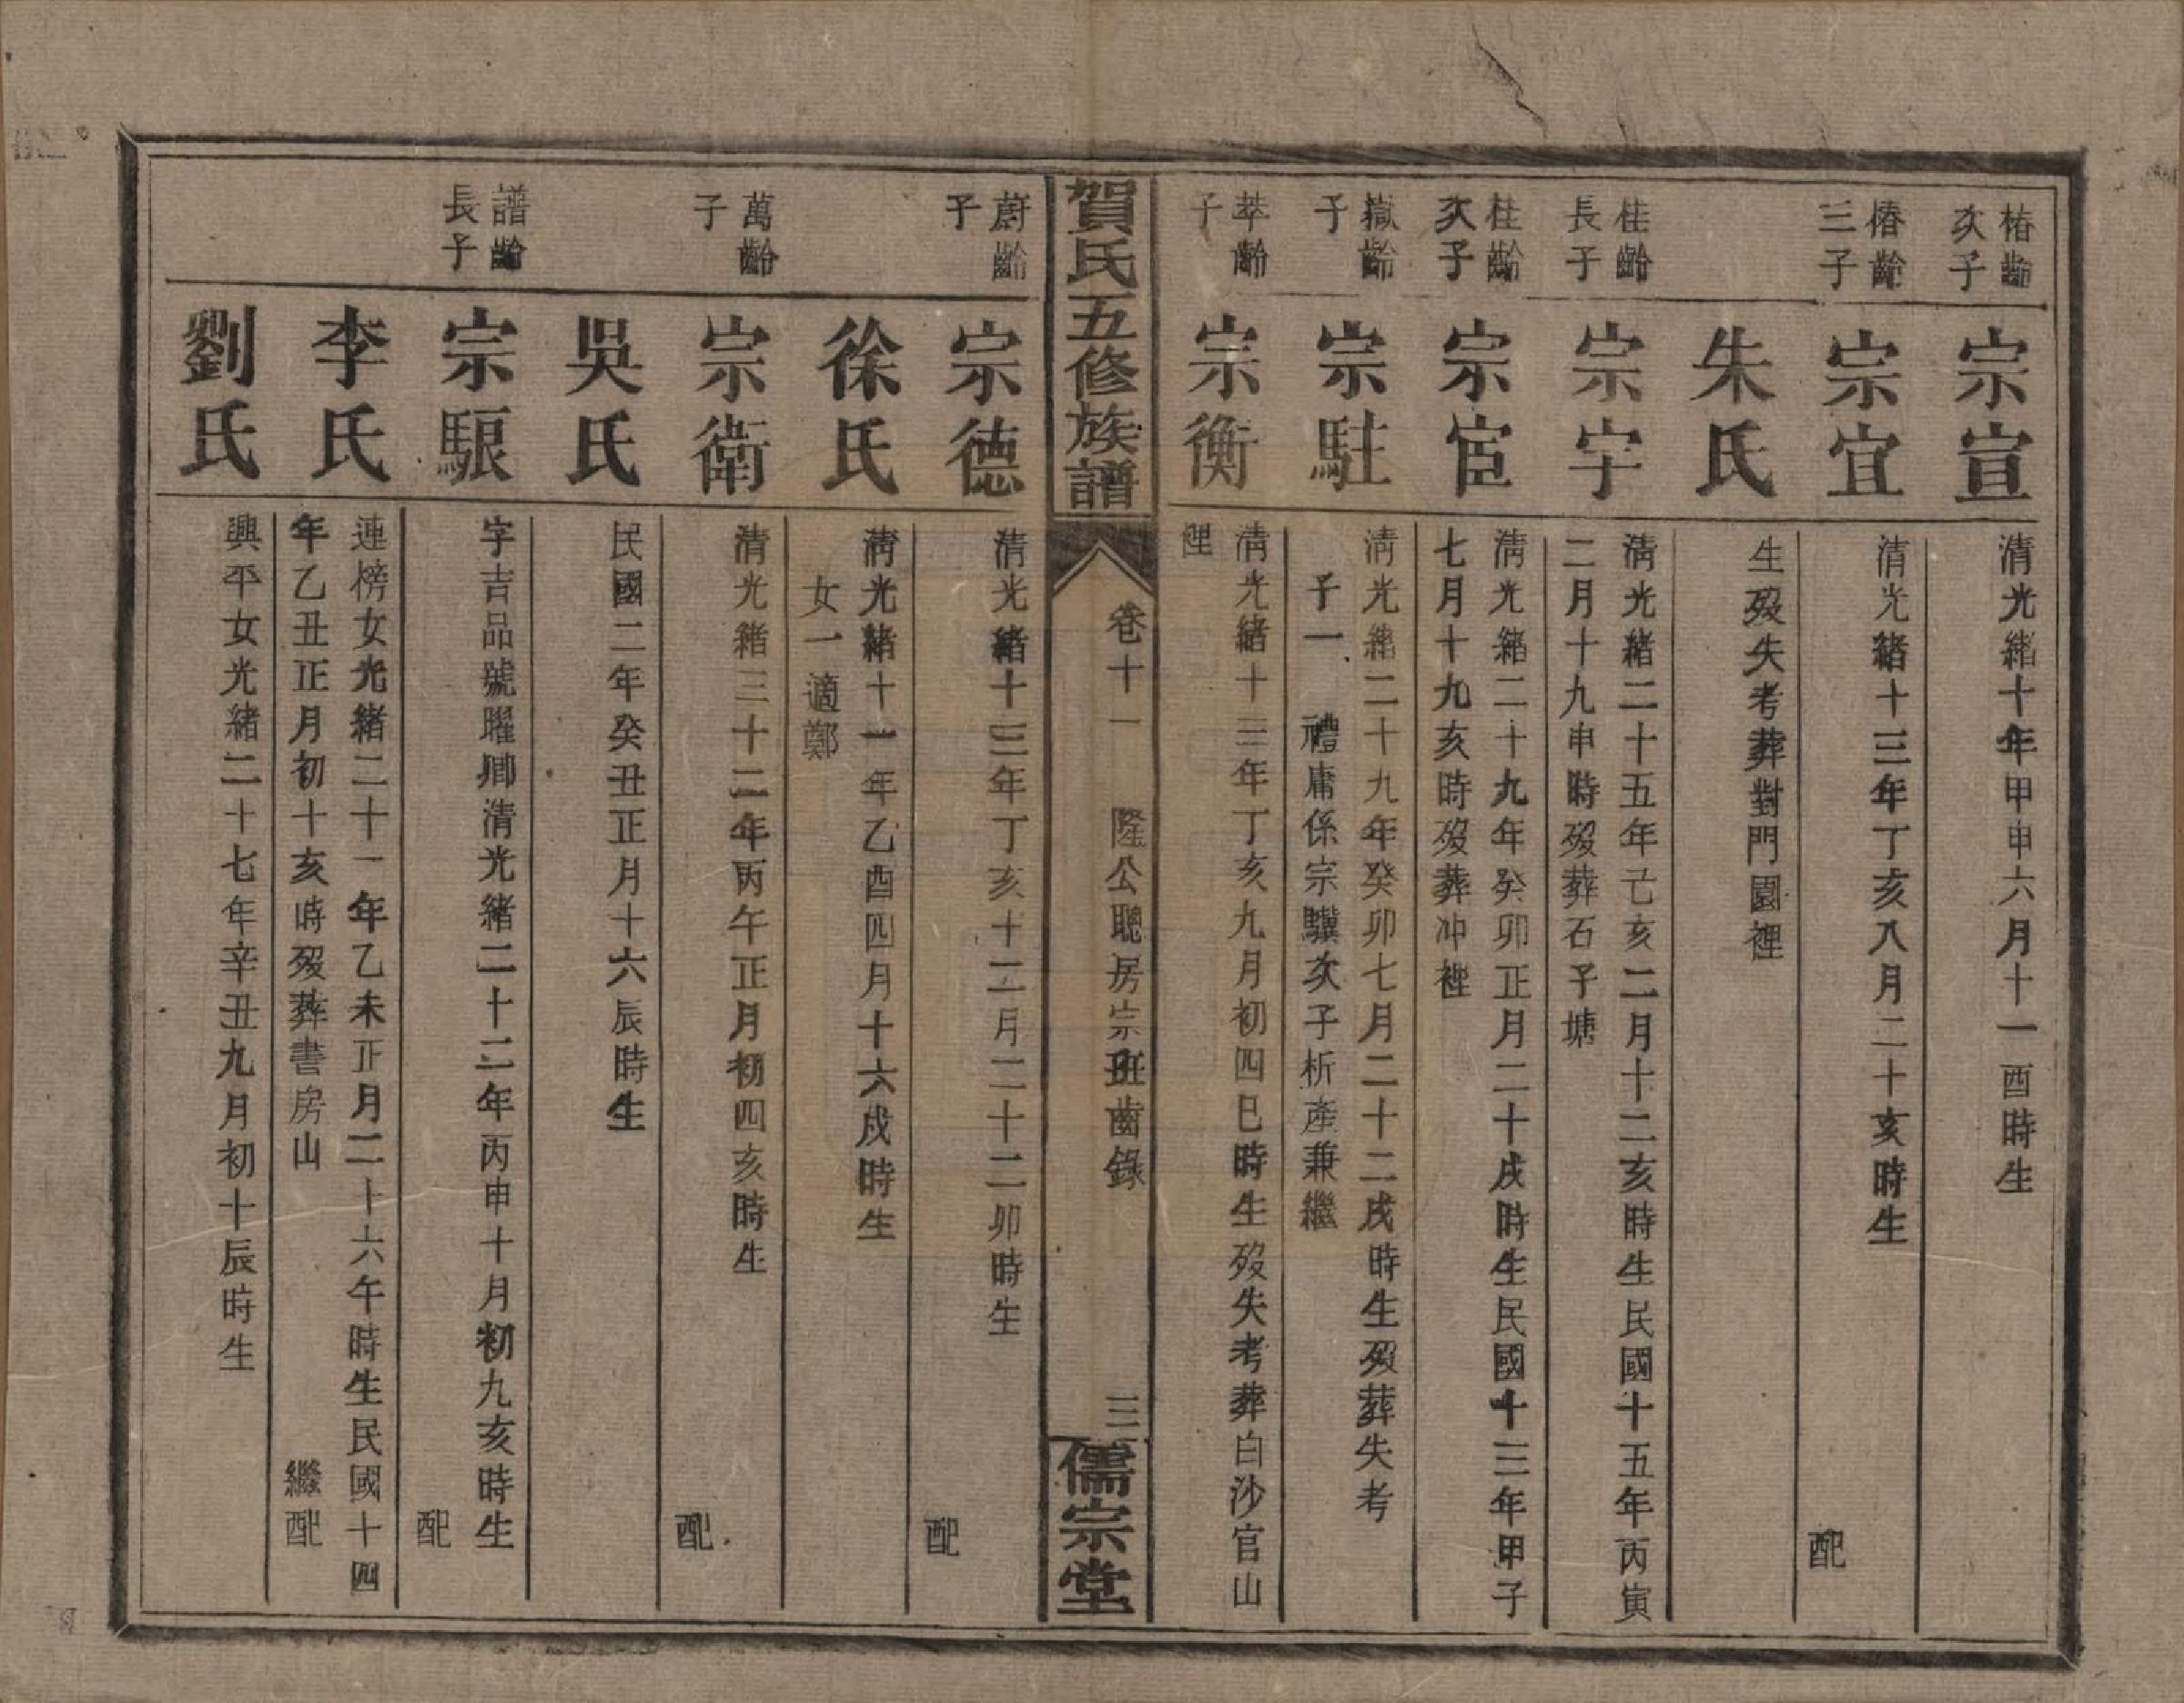 椿齡
次子
宗宣
清光緒十年甲申六月十一酉時生
椿齡
三子
宗宜
清光緒十三年丁亥八月二十亥時生
配
朱氏
生歿失考葬對門園裡
桂齡
長子
宗宇
清光緒二十五年己亥二月十二亥時生民國十五年丙寅
二月十九申時歿葬石子塘
桂齡
次子
宗宦
清光緒二十九年癸卯正月二十戌時生民國十三年甲子
七月十九亥時歿葬冲裡
嶽齡
子
宗駐
清光緒二十九年癸卯七月二十二戌時生歿葬失考
子一 禮庸係宗驥次子析產兼繼
萃齡
子
宗衡
清光緒十三年丁亥九月初四巳時生歿失考葬白沙官山
裡
賀氏五修族譜
卷十一 隆公聰房宗班齒錄 三
儒宗堂
蔚齡
子
宗德
清光緒十三年丁亥十二月二十二卯時生
配
徐氏
清光緒十一年乙酉四月十六戌時生
女一適鄭
萬齡
子
宗衛
清光緒三十二年丙午正月初四亥時生
配
吳氏
民國二年癸丑正月十六辰時生
譜齡
長子
宗駺
字吉品號曜卿清光緒二十二年丙申十月初九亥時生
配
李氏
連榜女光緒二十一年乙未正月二十六午時生民國十四
年乙丑正月初十亥時歿葬書房山
繼配
劉氏
興平女光緒二十七年辛丑九月初十辰時生